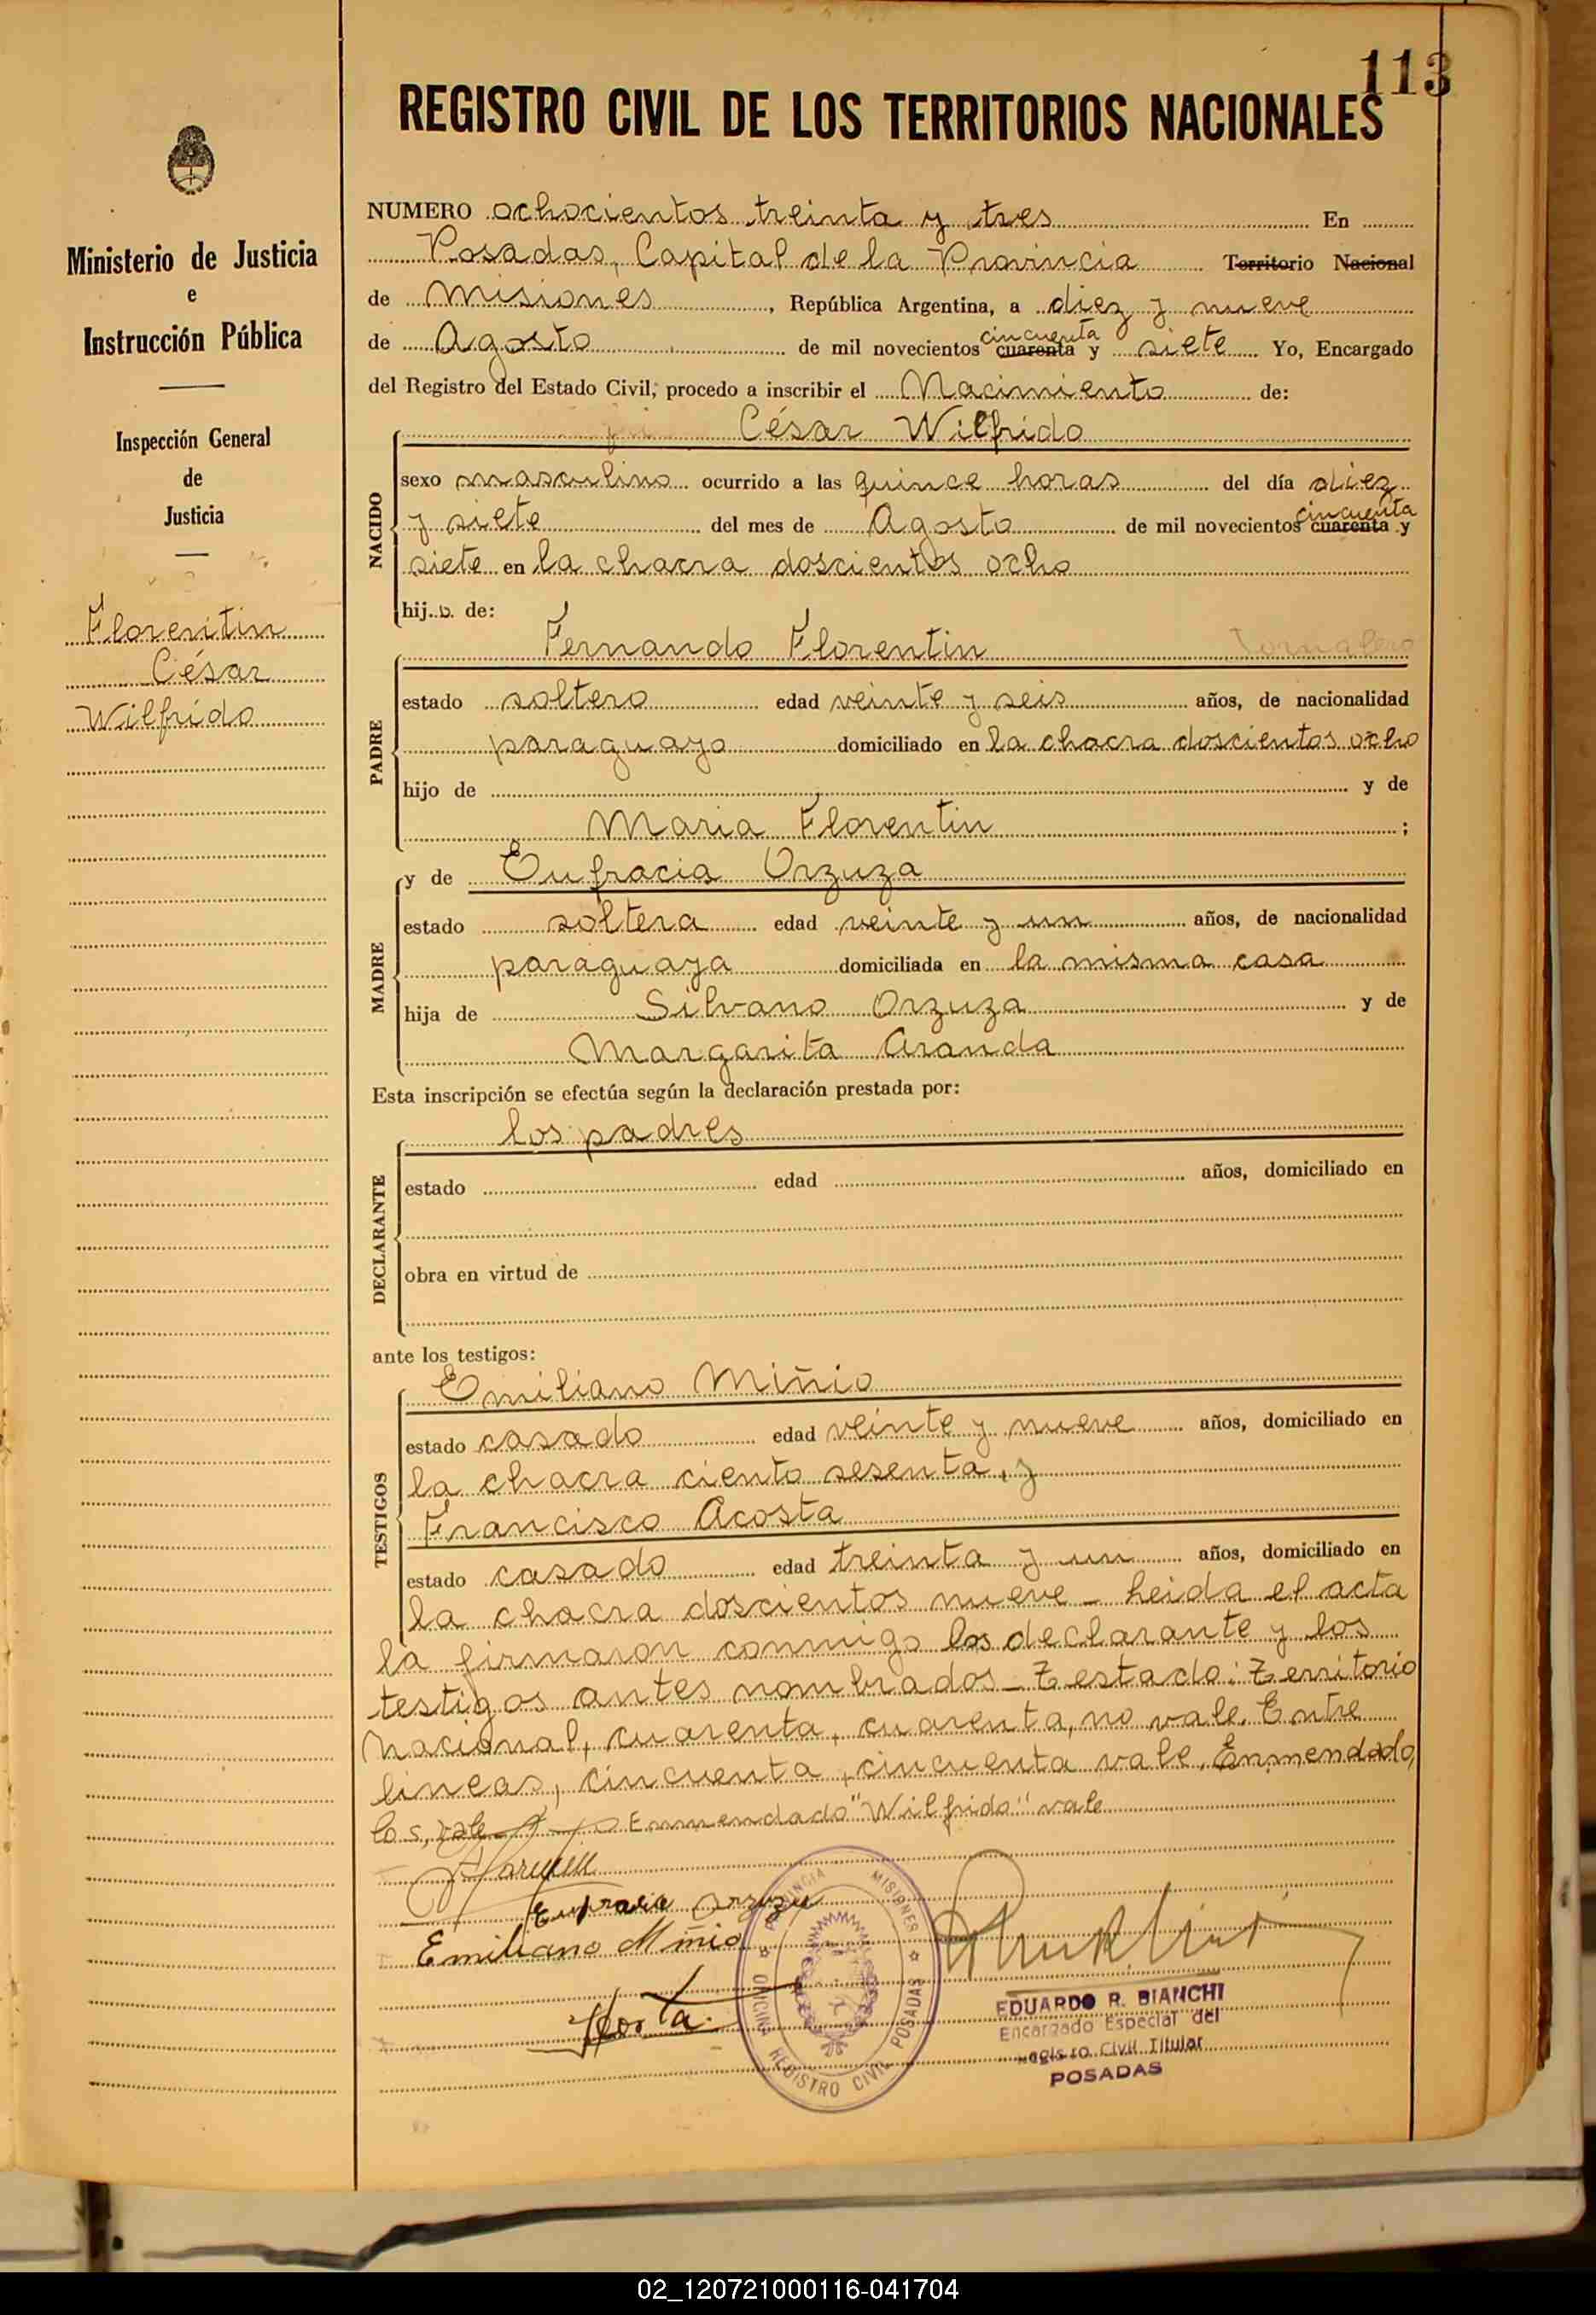 113
REGISTRO CIVIL DE LOS TERRITORIOS NACIONALES
Ministerio de Justicia
e
Instrucción Pública
Inspección General
de
Justicia
Florentin
César
Wilfrido
NUMERO ochocientos treinta y tres En
Posadas, Capital de la Provincia Territorio Nacional
de Misiones, República Argentina, a diez y nueve
de Agosto de mil novecientos cuarenta cincuenta y siete Yo, Encargado
del Registro del Estado Civil, procedo a inscribir el Nacimiento de:
NACIDO
César Wilfrido
sexo masculino ocurrido a las quince horas del día diez
y siete del mes de Agosto de mil novecientos cuarenta cincuenta y
siete en la chacra doscientos ocho
hijo de:
PADRE
Fernando Florentin Jornalero
estado soltero edad veinte y seis años, de nacionalidad
paraguayo domiciliado en la chacra doscientos ocho
hijo de y de
Maria Florentin ;
MADRE
y de Eufracia Orzuza
estado soltera edad veinte y un años, de nacionalidad
paraguaya domiciliada en la misma casa
hija de Silvano Orzuza y de
Margarita Aranda
Esta inscripción se efectúa según la declaración prestada por:
DECLARANTE
los padres
estado edad años, domiciliado en
obra en virtud de
ante los testigos:
TESTIGOS
Emiliano Miñio
estado casado edad veinte y nueve años, domiciliado en
la chacra ciento sesenta, y
Francisco Acosta
estado casado edad treinta y un años, domiciliado en
la chacra doscientos nueve - Leida el acta
la firmaron conmigo los declarante y los
testigos antes nombrados - Testado: Territorio
Nacional, cuarenta, cuarenta, no vale. Entre
lineas, cincuenta, cincuenta vale. Enmendado,
los, vale Enmendado "Wilfrido" vale
Eufracia Orzuza
Emiliano Miñio
PROVINCIA MISIONES
OFICINA REGISTRO CIVIL POSADAS
EDUARDO R. BIANCHI
Encargado Especial del
Registro Civil Titular
POSADAS
02_120721000116-041704